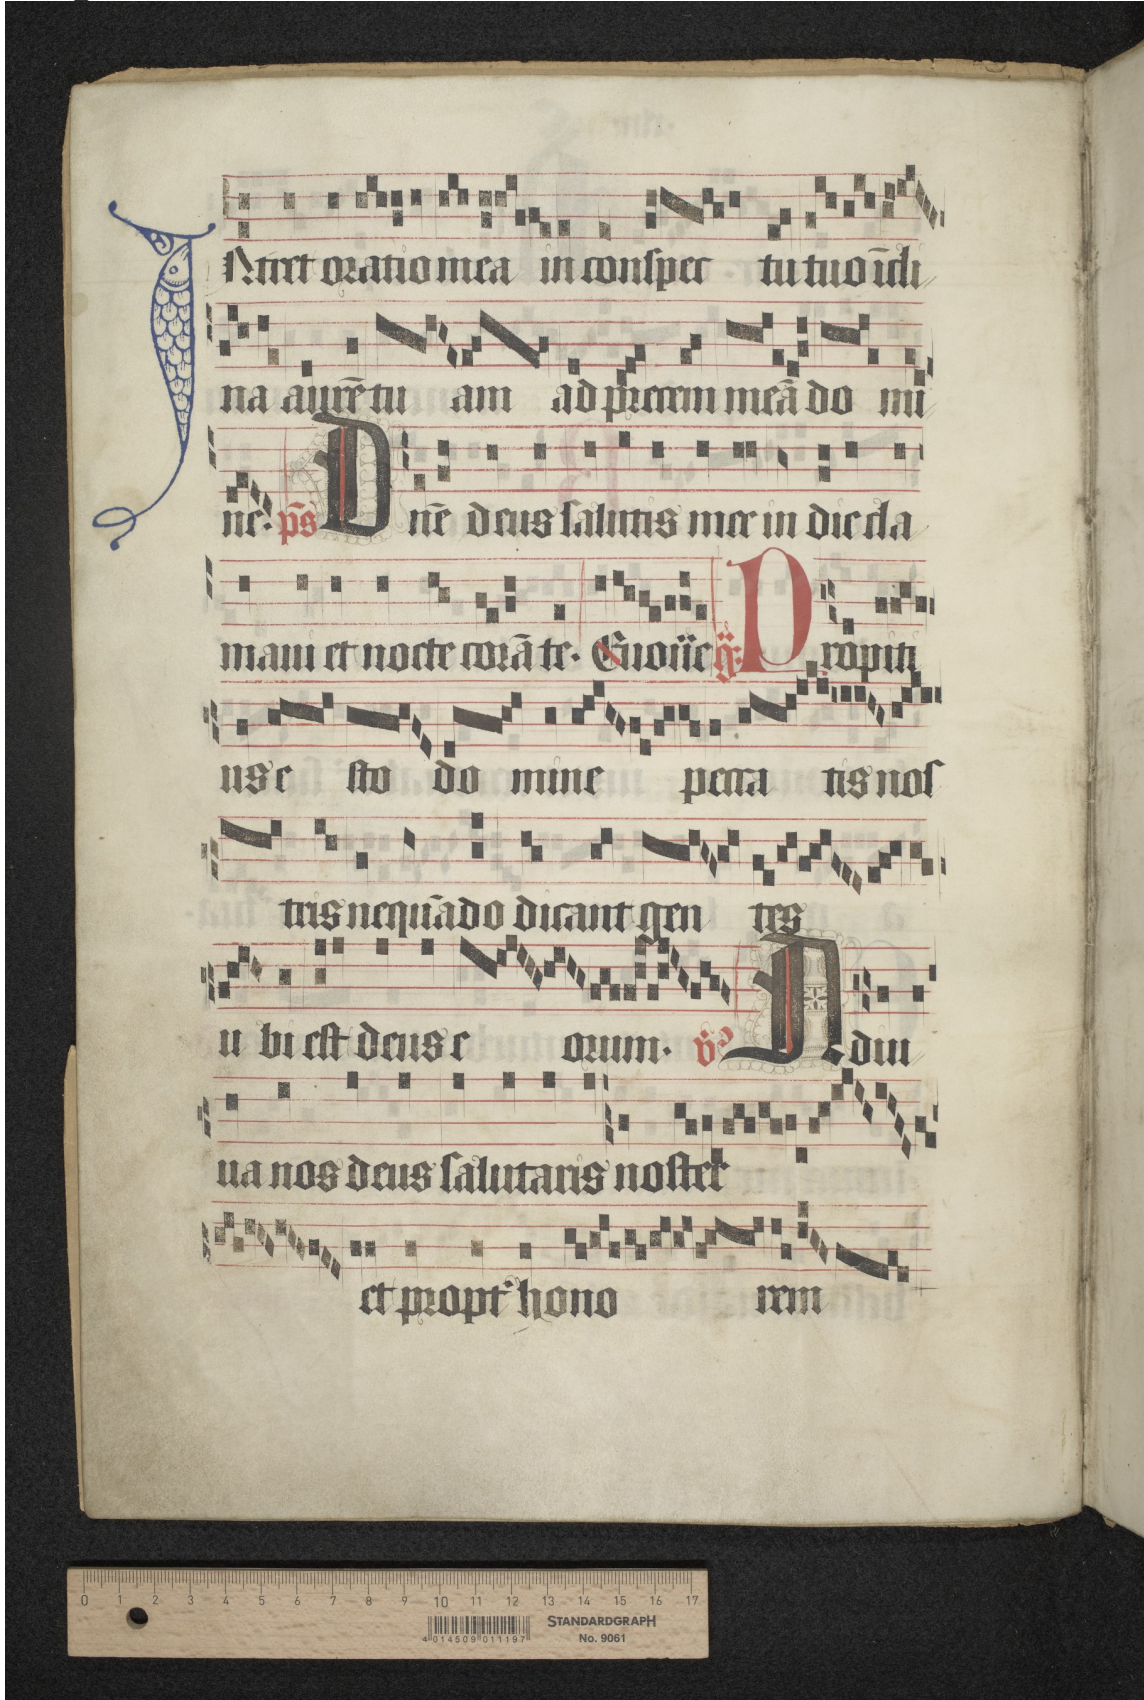 INtret oratio mea in conspec tu tuo īcli
na aurē tu am ad precem meā do mi
ne. p̄s Dnē deus salutis mee in die cla
maui et nocte corā te. Euouae gͬ. Propiti
us e sto do mine pecca tis nos
tris nequādo dicant gen tes
u bi est deus e orum. v̊ Adiu
ua nos deus salutaris noster
et propt᷑ hono rem
0 1 2 3 4 5 6 7 8 9 10 11 12 13 14 15 16 17
4 014509 011197
STANDARDGRAPH
No. 9061